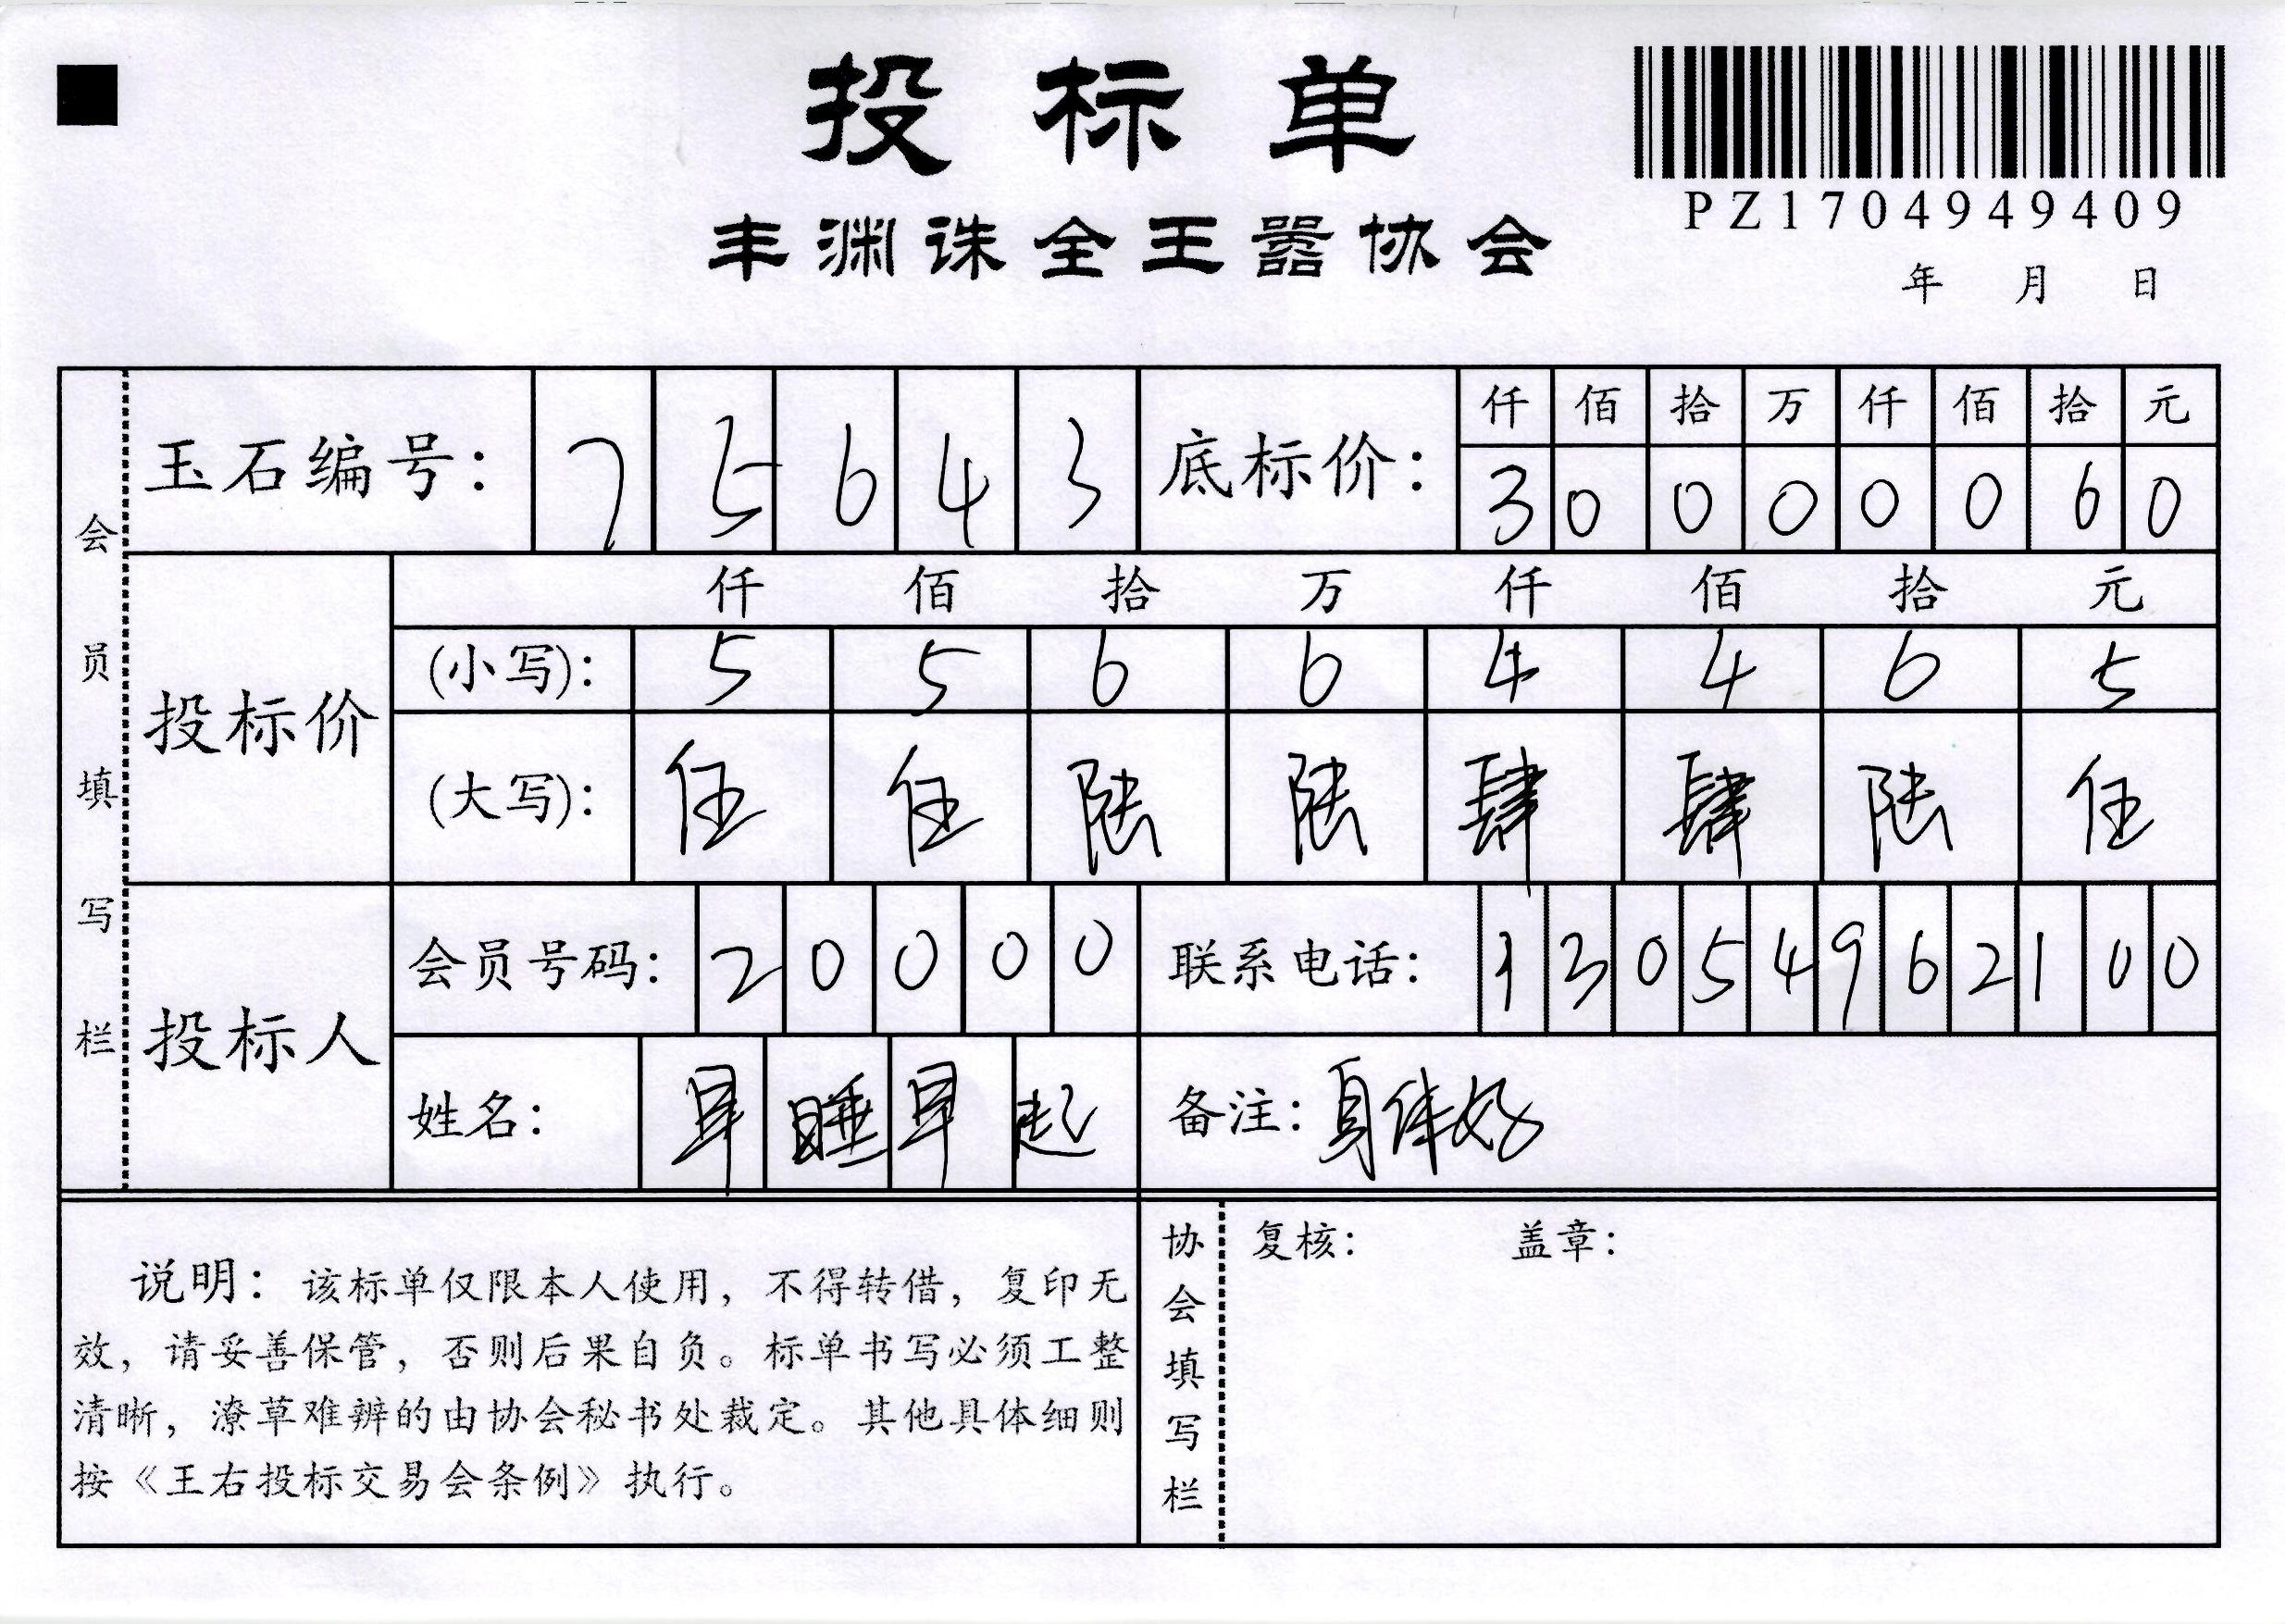 投标单
PZ1704949409
丰渊诛全王嚣协会
年 月 日
会员填写栏
玉石编号: 7 5 6 4 3
底标价: 仟 佰 拾 万 仟 佰 拾 元
3 0 0 0 0 0 6 0
投标价
仟 佰 拾 万 仟 佰 拾 元
(小写): 5 5 6 6 4 4 6 5
(大写): 伍 伍 陆 陆 肆 肆 陆 伍
投标人
会员号码: 2 0 0 0 0
联系电话: 1 3 0 5 4 9 6 2 1 0 0
姓名: 早 睡 早 起
备注: 身体好
说明: 该标单仅限本人使用, 不得转借, 复印无
效, 请妥善保管, 否则后果自负。标单书写必须工整
清晰, 潦草难辨的由协会秘书处裁定。其他具体细则
按《王右投标交易会条例》执行。
协会填写栏
复核: 盖章: